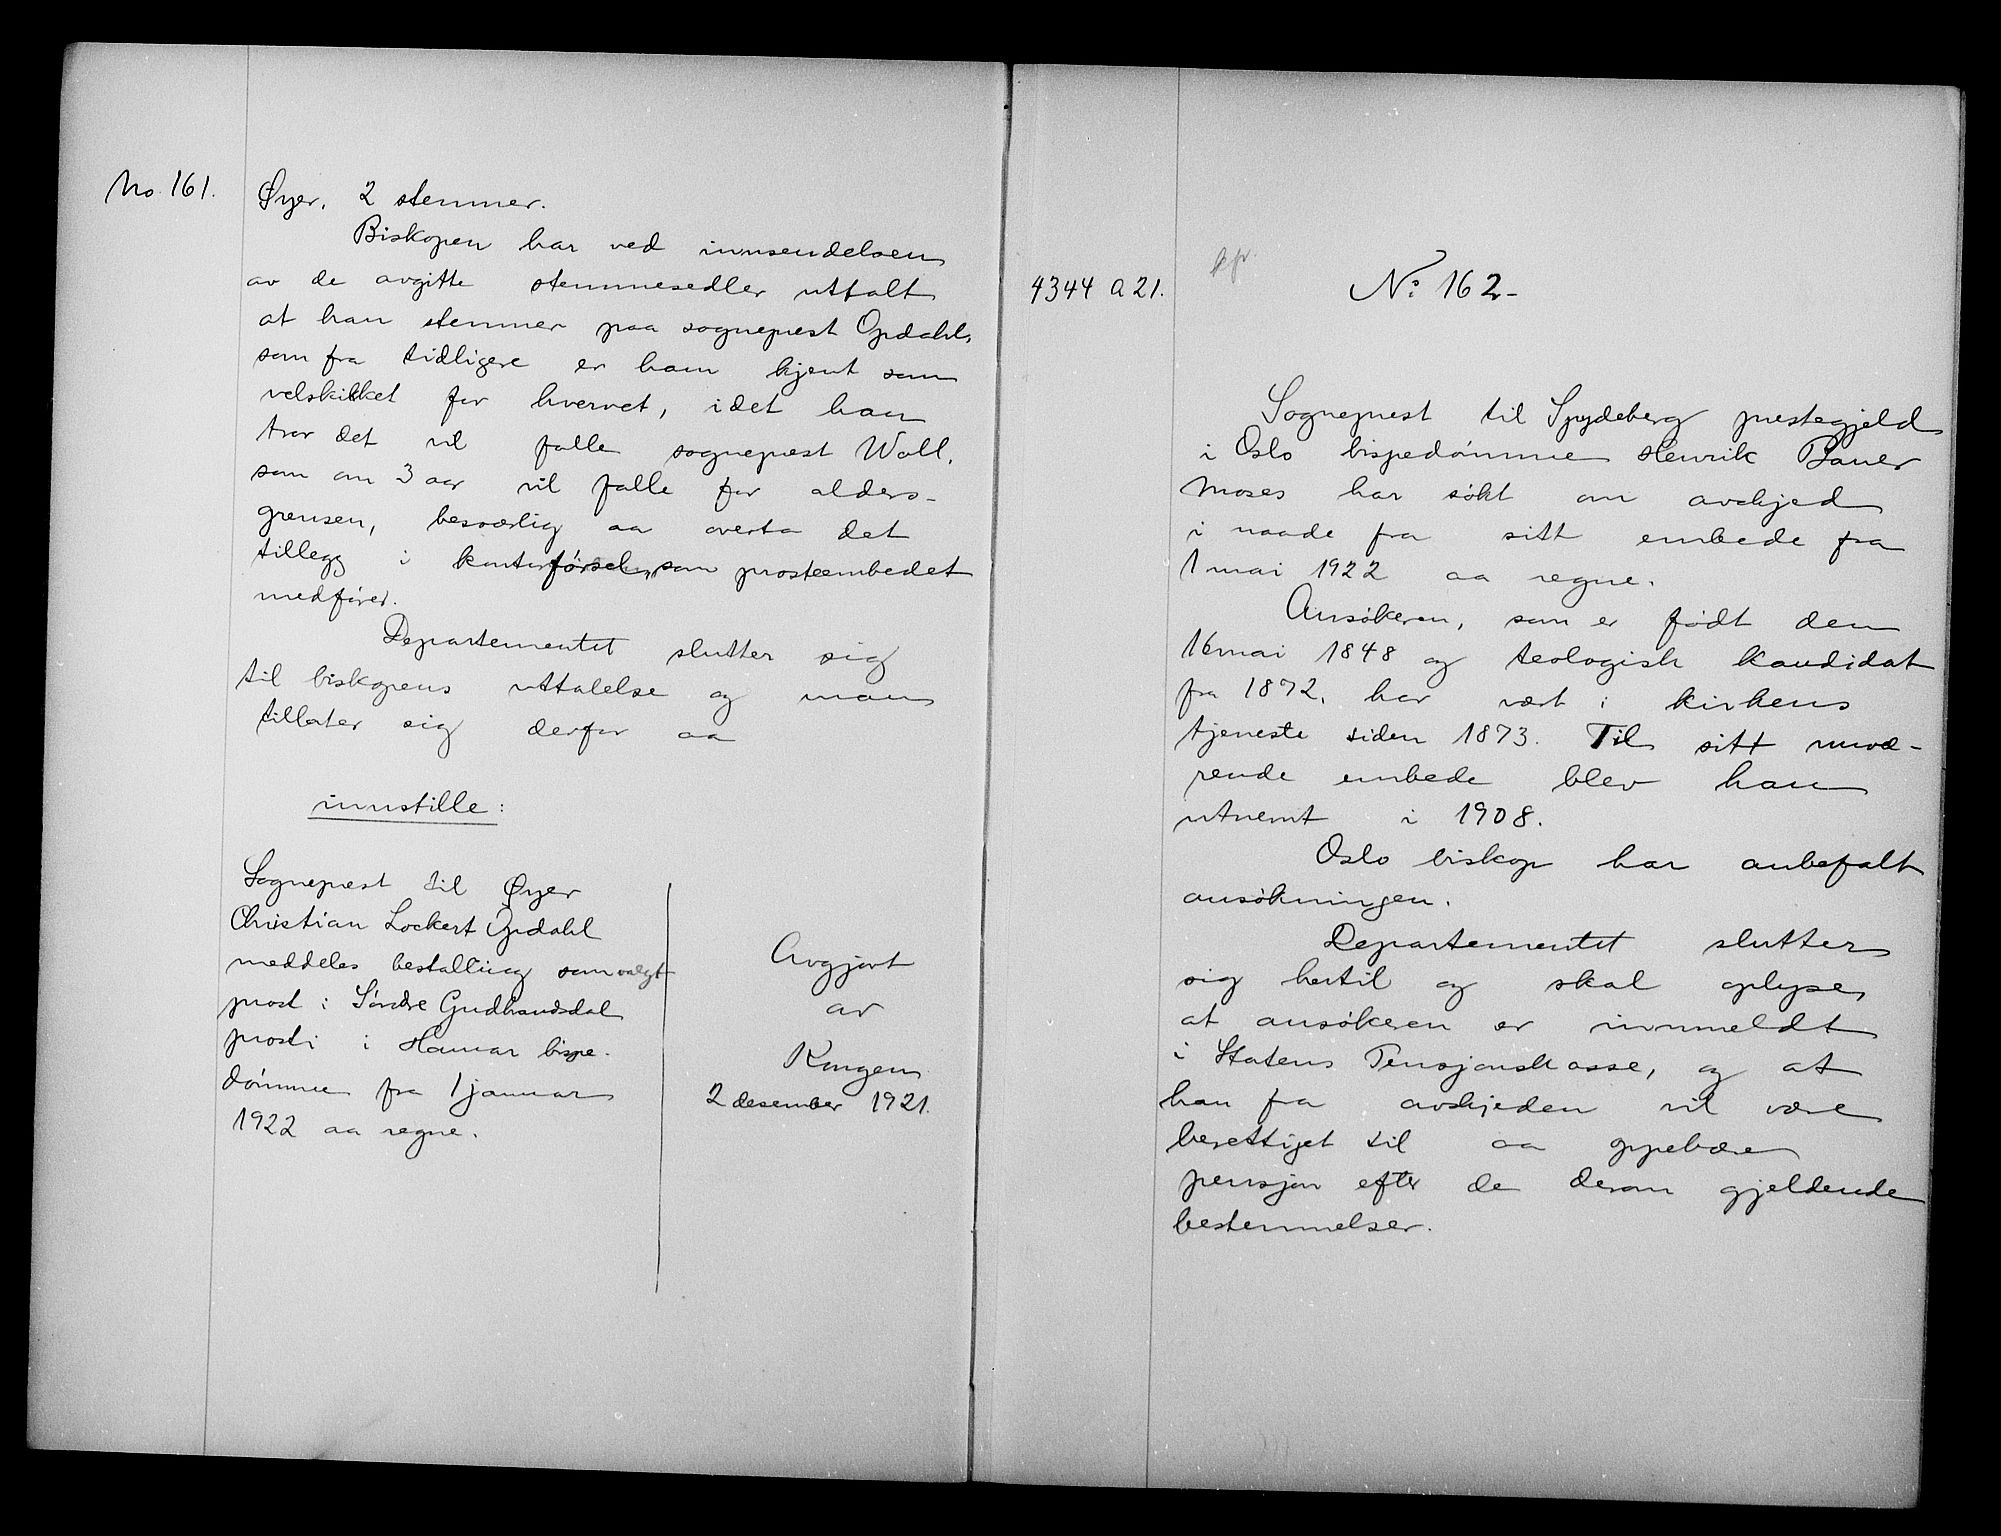 No 161.
Øyer. 2 stemmer.
Biskopen har ved innsendelsen
av de avgitte stemmesedler uttalt
at han stemmer paa sogneprest Opdahl,
som fra tidligere er ham kjent som
velskikket for hvervet, idet han
tror det vil falle sogneprest Wall,
som om 3 aar vil falle for alders-
grensen, besværlig aa overta det
tillegg i kontorførselen, som prosteembedet
medfører.
Departementet slutter sig
til biskopens uttalelse og man
tillater sig derfor aa
innstille:
Sogneprest til Øyer
Christian Lockert Opdahl
meddeles bestalling som valgt
prost i Søndre Gudbrandsdal
prosti i Hamar bispe-
dømme fra 1 januar
1922 aa regne.
Avgjort
av
Kongen
2 desember 1921.
4344 A 21.
No 162-
Sogneprest til Spydeberg prestegjeld
i Oslo bispedømme Henrik Bauer
Moses har søkt om avskjed
i naade fra sitt embede fra
1 mai 1922 aa regne.
Ansøkeren, som er født den
16 mai 1848 og teologisk kandidat
fra 1872, har vært i kirkens
tjeneste siden 1873. Til sitt nuvæ-
rende embede blev han
utnemt i 1908.
Oslo biskop har anbefalt
ansøkningen.
Departementet slutter
sig hertil og skal oplyse,
at ansøkeren er innmeldt
i Statens Pensjonskasse, og at
han fra avskjeden vil være
berettiget til aa oppebære
pensjon efter de derom gjeldende
bestemmelser.